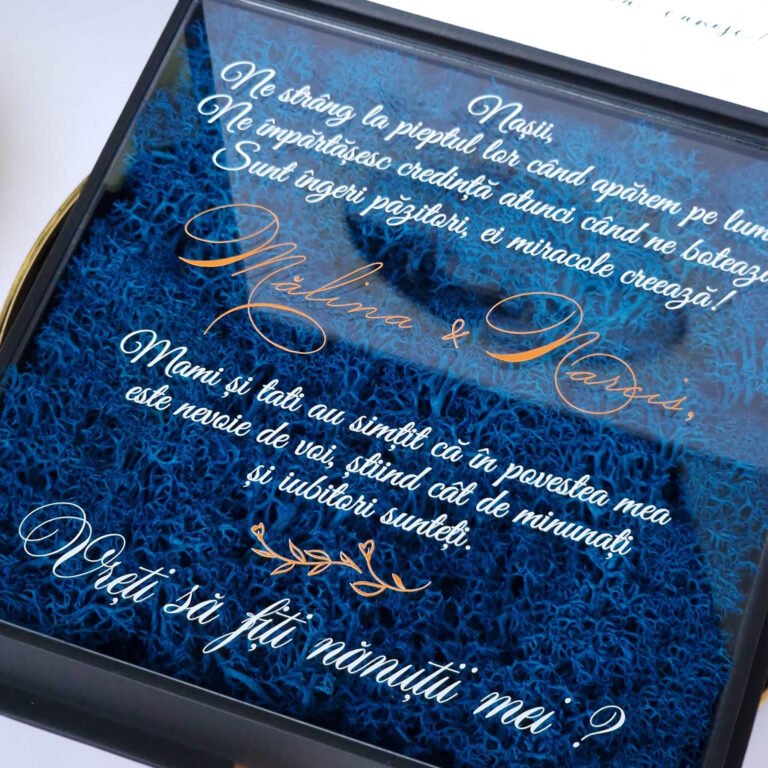 cunosc!
Nașii,
Ne strâng la pieptul lor când apărem pe lum
Ne împărtășesc credință atunci când ne boteaz
Sunt îngeri păzitori, ei miracole creează!
Mălina & Narcis,
Mami și tati au simțit că în povestea mea
este nevoie de voi, știind cât de minunați
și iubitori sunteți.
Vreți să fiți nănuții mei ?